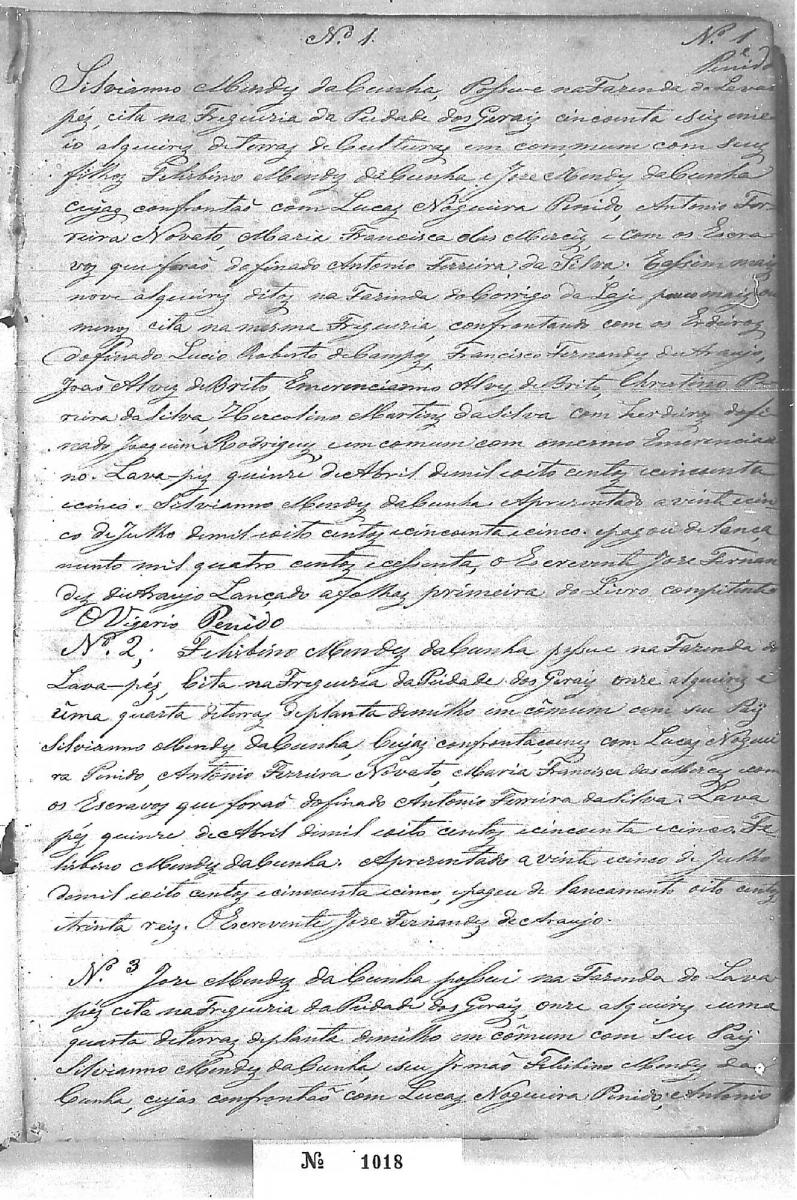 Nº 1. Nº 1
Penido
Silvianno Mendz da Cunha, Possue na Fazenda do Lava
péz, cita na Freguezia da Piedade dos Geraiz cincoenta e seiz eme
io alqueirz de terraz de Culturaz em commum com seuz
filhoz Felisbino Mendz da Cunha e Joze Mendz da Cunha
cujaz confrontão com Lucaz Nogueira Penido, Antonio Fer-
reira Novato, Maria Francisca das Mercêz, e com os Escra
voz que forão do finado Antonio Ferreira da Silva. E assim maiz
nove alqueirz ditoz na Fazenda do Corrigo da Laje pouco maiz ou
menoz cita na mesma Freguezia, confrontando com os Erdeiroz
do finado Lucio Roberto de Campoz, Francisco Fernandz de Araujo,
João Alvez de Brito, Emerencianno Alvz de Brito, Christino Pe-
reira da Silva, Hercolino Martinz da Silva com herdeiroz do fi-
nado Joaquim Rodriguez e em comum com o mesmo Emerencia
no. Lava-péz quinze de Abril de mil e oito centoz e cincoenta
e cinco. Silvianno Mendz da Cunha. Aprezentado a vinte e cin
co de Julho de mil e oito centoz e cincoenta e cinco. e pagou de lança
mento mil quatro centoz e cessenta, o Escrevente Joze Fernan
dez de Araujo Lançado a folhaz primeira do Livro competente
O Vigario Penido
Nº. 2; Felisbino Mendz da Cunha possue na Fazenda do
Lava-péz, Cita na Freguezia da Piedade dos Geraiz onze alqueirz e
uma quarta de terraz de planta de milho em cômum com seu Pay
Silvianno Mendz da Cunha, Cujaz confrontaçoinz com Lucaz Noguei
ra Penido, Antonio Ferreira Novato, Maria Francisca das Mercez e com
os Escravoz que forão do finado Antonio Ferreira da Silva. Lava
péz quinze de Abril de mil e oito centoz e cincoenta e cinco. Fe-
lisbino Mendz da Cunha. Aprezentado a vinte e cinco de Julho
de mil e oito centoz e cincoenta e cinco, e pagou de lancamento oito centoz
e trinta reiz. O Escrevente Joze Fernandez de Araujo.
Nº. 3 Joze Mendz da Cunha possui na Fazenda do Lava
péz cita na Freguezia da Piedade dos Geraiz, onze alqueirz e uma
quarta de terraz de planta de milho em cômum com seu Pay
Silvianno Mendz da Cunha, e seu Irmaõ Felisbino Mendz da
Cunha, cujas confrontão com Lucaz Nogueira Penido, e Antonio
Nº 1018